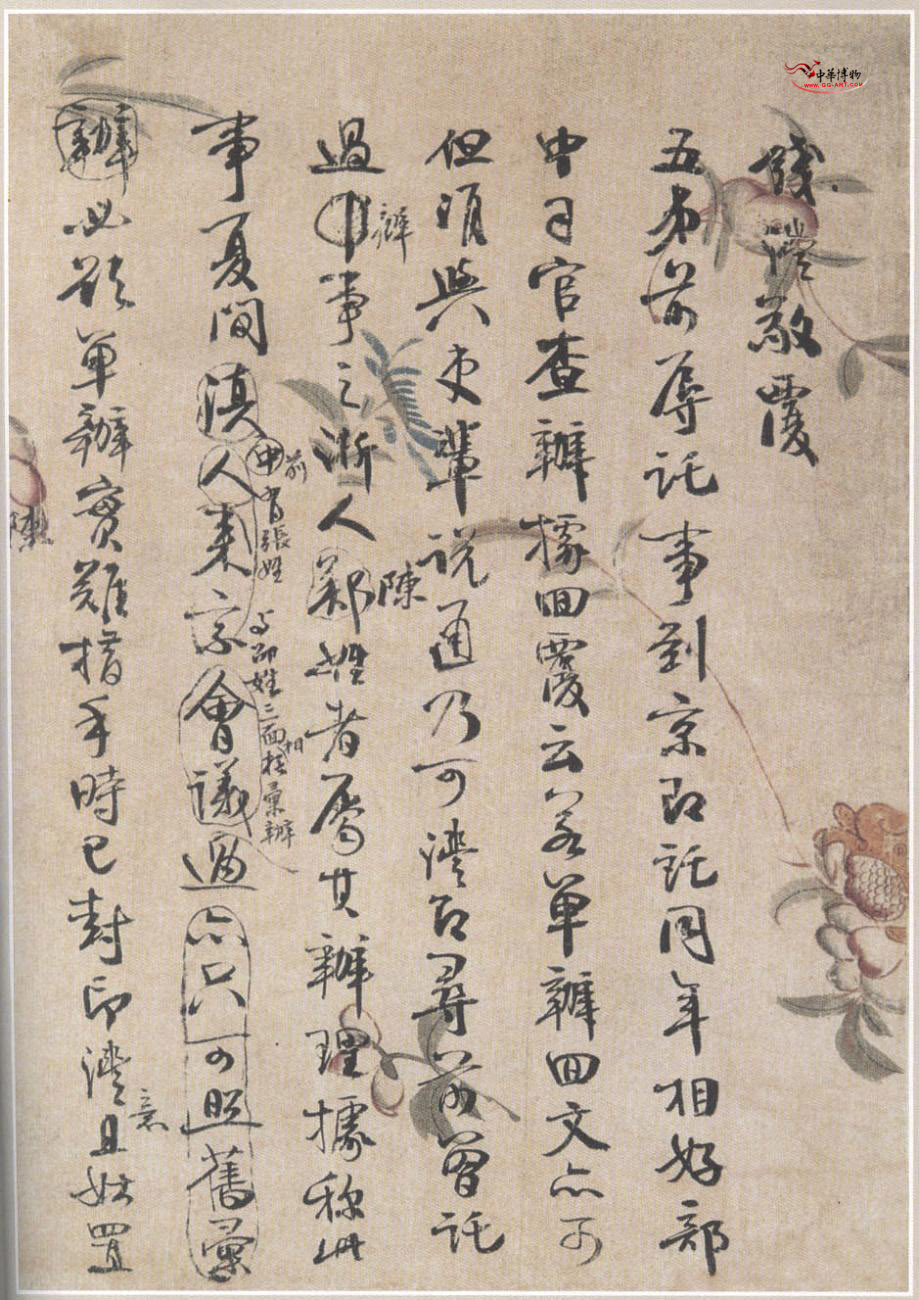 錢灃敬覆
五弟前辱託事到京即託同年相好部
中司官查辦據回覆云若單辦回文亦可
但須與吏輩說通乃可灃即尋前曾託
過申事之浙人鄭姓者屬其辦理據称此
辦
陳
事夏間滇人來京會議過亦只可照舊彙
前
申官張姓
與鄭姓三面相彙辦
辦必欲單辦實難措手時已封印灃且姑置
意
陳
中華博物
WWW.GG-ART.COM